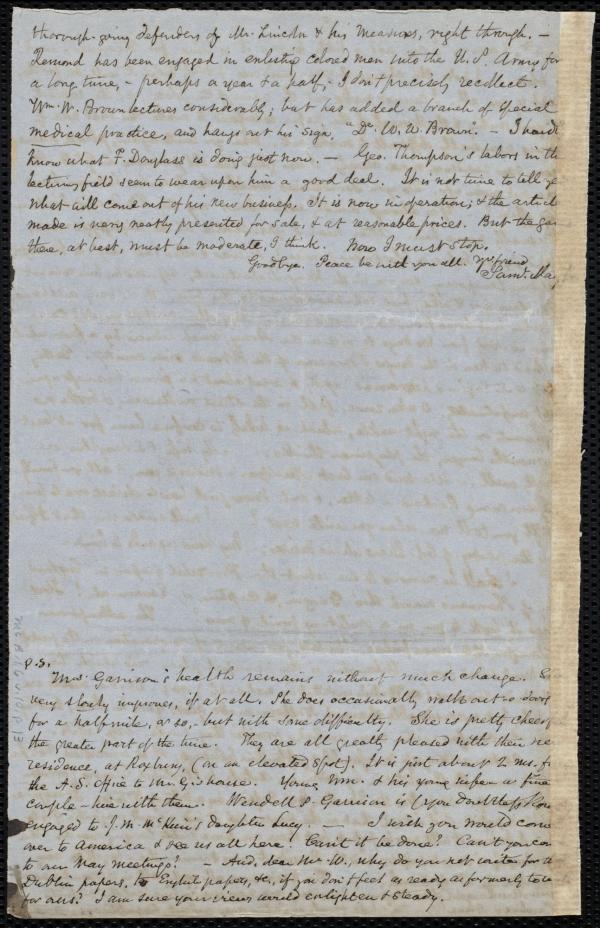 thorough-going defenders of Mr. Lincoln & his measures, right through. —
Remond has been engaged in enlisting colored men into the U.S. Army for
a long time, - perhaps a year & a half, - I don't precisely recollect.
Wm. W. Brown lectures considerably; but has added a branch of special
medical practice, and hangs out his sign, "Dr. W. W. Brown." — I
know what F. Douglass is doing just now. — Geo. Thompson's labors in
lecturing field seem to wear upon him a good deal. It is not time to tell
what will come out of his new business. It is now in operation; & the
made is very neatly presented for sale, & at reasonable prices. But the
there, at best, must be moderate, I think. Now I must stop.
Goodbye. Peace be with you all. Yr. friend
Saml. May
P.S.
Mrs. Garrison's health remains without much change.
very slowly improves, if at all. She does occasionally walk out o' doors
for a half mile, or so, - but with some difficulty. She is pretty
the greater part of the time. They are all greatly pleased with their
residence, at Roxbury, (on an elevated spot). It is just about 2 ms.
the A.S. Office to Mr. G's house. Young Wm. & his young wife - a fine
couple - live with them. Wendell P. Garrison is (you doubtless
engaged to J. M. McKim's daughter Lucy. — I wish you would
over to America & see us all here! Can't it be done? Can't you
to our May meetings? — And, dear Mr. W., why do you not write for
Dublin papers, to English papers, &c., if you don't feel as ready as formerly to
for ours? I am sure your views would enlighten & steady.